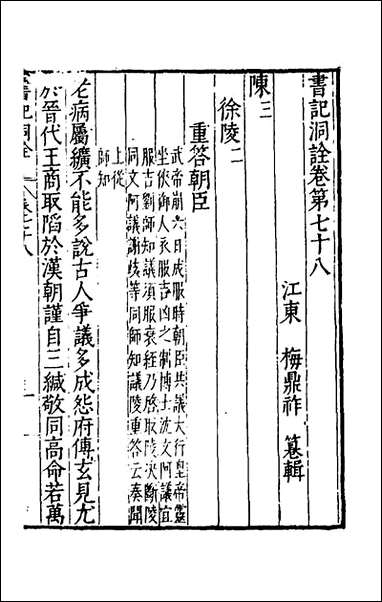 書記洞詮卷第七十八
江東　梅鼎祚　纂輯
陳三
徐陵二
重答朝臣
武帝崩六日成服時朝臣共議大行皇帝靈
坐俠御人衣服吉凶之制博士沈文阿議宜
服吉劉師知議須服衰絰乃啓取陵決斷陵
同文阿議謝岐等同師知議陵重答云奏聞
上從
師知
老病屬纊不能多說古人爭議多成怨府傳玄見尤
於晉代王商取陷於漢朝謹自三緘敬同高命若萬